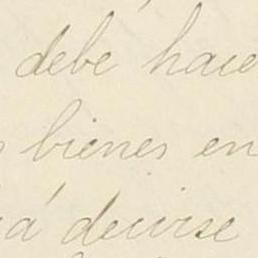 debe hace
bienes en
á decirse